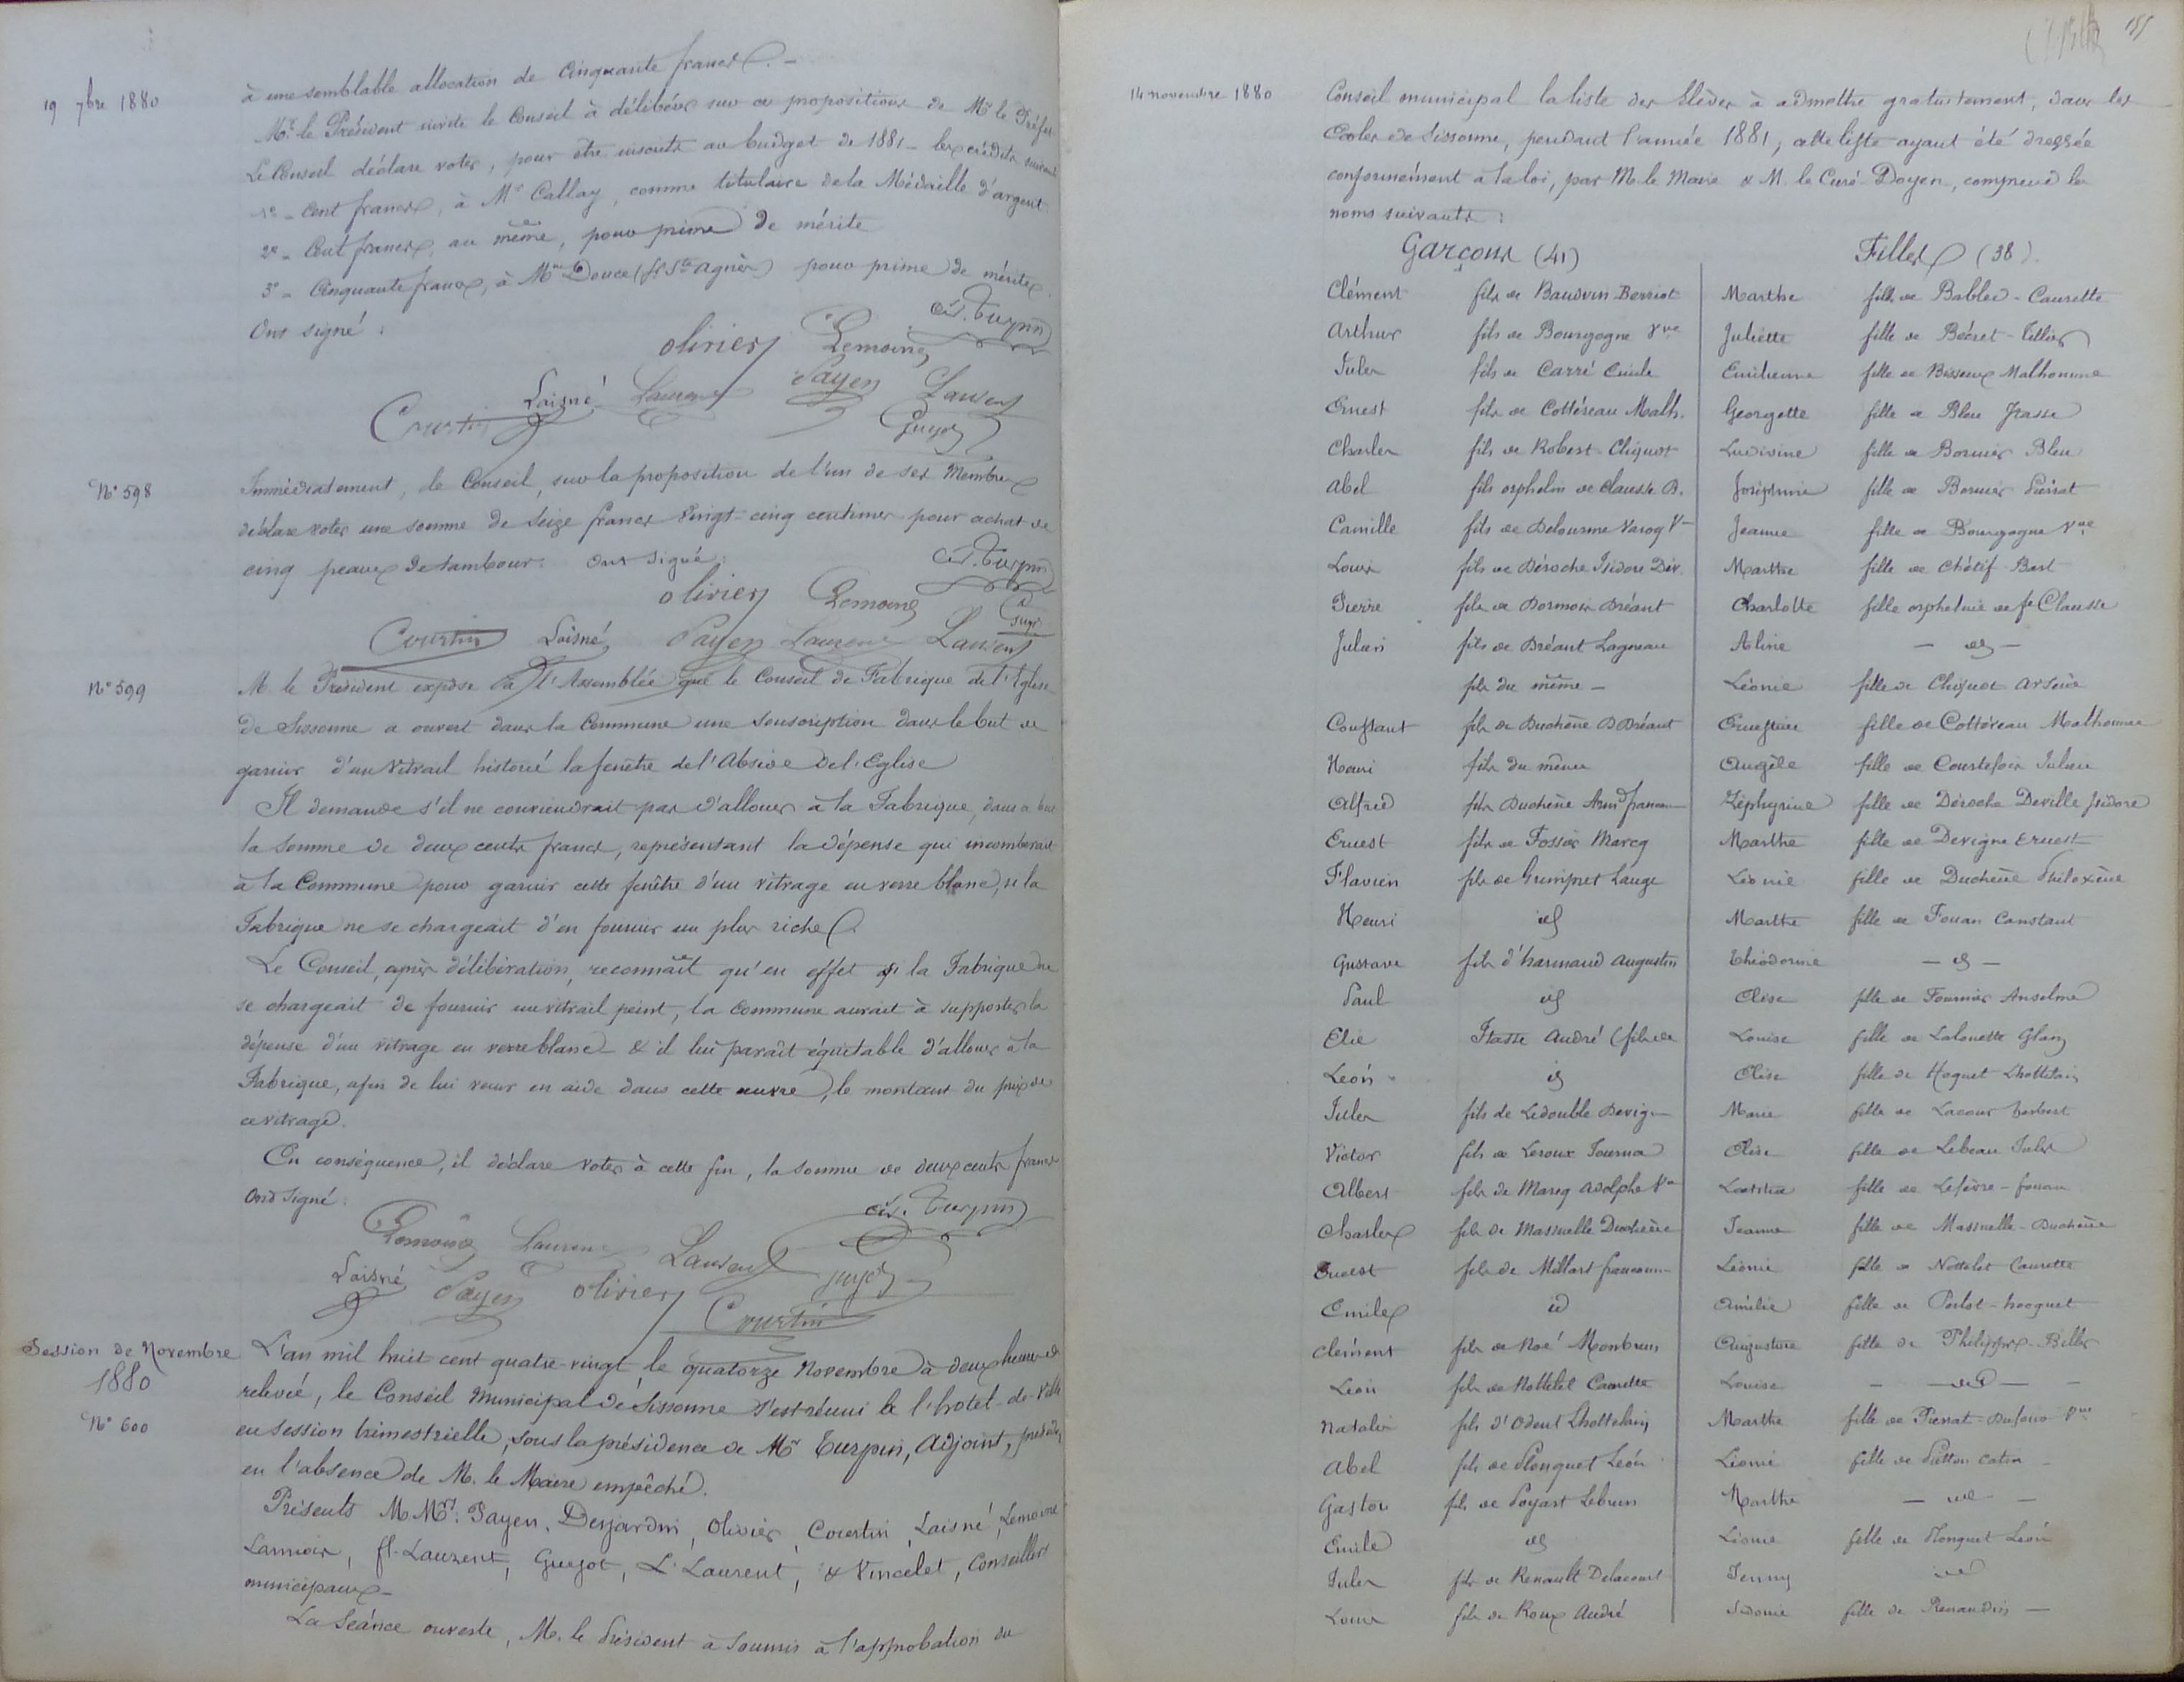 19 7bre 1880
à une semblable allocation de Cinquante francs. -
Mr. le Président invite le Conseil à délibérer sur ces propositions de Mr le Préfet
Le Conseil déclare voter, pour être inscrits au budget de 1881 - les crédits suivants
1° - Cent francs, à Mr Callay, comme titulaire de la Médaille d'argent
2° - Cent francs, au même, pour prime de mérite
3° - Cinquante francs, à Mme Douce (Sr Ste Agnès) pour prime de mérite.
Ont signé :
Ct. Turpin
Olivier Lemoine
Laisné Laurent Payen Laurent
Courtin Guyot
N° 598
Immédiatement, le Conseil, sur la proposition de l'un de ses Membres
déclare voter une somme de Seize francs Vingt-cinq centimes pour achat de
cinq peaux de tambour. Ont signé :
Ct. Turpin
Olivier Lemoine
Courtin Laisné Payen Laurent Laurent
N° 599
M. le Président expose à l'Assemblée que le Conseil de Fabrique de l'Eglise
de Sissonne a ouvert dans la Commune une souscription dans le but de
garnir d'un Vitrail historié la fenêtre de l'Abside de l'Eglise
Il demande s'il ne conviendrait pas d'allouer à la Fabrique, dans ce but
la somme de deux cents francs, représentant la dépense qui incomberait
à la Commune pour garnir cette fenêtre d'un vitrage en verre blanc, si la
Fabrique ne se chargeait d'en fournir un plus riche.
Le Conseil, après délibération, reconnaît qu'en effet si la Fabrique ne
se chargeait de fournir un vitrail peint, la Commune aurait à supporter la
dépense d'un vitrage en verre blanc - & il lui paraît équitable d'allouer à la
Fabrique, afin de lui venir en aide dans cette œuvre, le montant du prix de
ce vitrage.
En conséquence, il déclare voter à cette fin, la somme de deux cents francs
Ont signé :
Ct. Turpin
Lemoine Laurent Laurent
Laisné Payen Olivier Guyot
Courtin
Session de Novembre
1880
N° 600
L'an mil huit cent quatre-vingt, le quatorze Novembre à deux heures de
relevée, le Conseil Municipal de Sissonne s'est réuni à l'hotel-de-Ville
en session trimestrielle, sous la présidence de Mr Turpin, Adjoint, président
en l'absence de M. le Maire empêché.
Présents M Mrs. Payen, Desjardin, Olivier, Courtin, Laisné, Lemoine
Lannois, fl. Laurent, Guyot, L. Laurent, & Vincelet, Conseillers
municipaux -
La Séance ouverte, M. le Président a soumis à l'approbation du
14 novembre 1880
Conseil municipal la liste des Elèves à admettre gratuitement, dans les
Ecoles de Sissonne, pendant l'année 1881, cette liste ayant été dressée
conformément à la loi, par M. le Maire & M. le Curé-Doyen, comprend les
noms suivants :
Garçons (41) Filles (38)
Clément fils de Baudvin-Berriot Marthe fille de Babled-Caurette
Arthur fils de Bourgogne Vve Juliette fille de Bécret-Tellier
Jules fils de Carré Emile Emilienne fille de Bisseux Malhomme
Ernest fils de Cottéreau Malh. Georgette fille de Bleu Frasse
Charles fils de Robert-Cliquot Ludivine fille de Bornier Bleu
Abel fils orphelin de Clausse B. Joséphine fille de Bornier Piérat
Camille fils de Delourme Varoq Vve Jeanne fille de Bourgogne Vve
Louis fils de Déroche Isidore Dev. Marthe fille de Chétif-Bart
Pierre fils de Dormois Bréant Charlotte fille orpheline de fs Clausse
Julien fils de Bréant Lagneau Aline - id -
fils du même - Léonie fille de Cliquot Arsène
Constant fils de Duchêne D Bréant Ernestine fille de Cottereau Malhomme
Henri fils du même Angèle fille de Courtefois Julien
Alfred fils Duchêne Armd Zéphyrine fille de Déroche Deville Isidore
Ernest fils de Fossier Marcq Marthe fille de Devigne Ernest
Flavien fils de Grimpret Lange Léonie fille de Duchêne Philoxène
Henri id Marthe fille de Fouan Constant
Gustave fils d'harmand Augustin Théodorine - id -
Paul id Elise fille de Fournier Anselme
Elie Frasse André (fils de Louise fille de Lalouette
Léon id Elise fille de Hoguet Lhottelain
Jules fils de Ledouble Devig- Marie fille de Lacour herbert
Victor fils de Leroux Elise fille de Lebeau Jules
Albert fils de Marcq Adolphe Vve Laetitia fille de Lefèvre-fouan
Charles fils de Massuelle Duchêne Jeanne fille de Massuelle-Duchêne
Ernest fils de Millart Léonie fille de Nottelet Caurette
Emile id Amélie fille de
Clément fils de Noé Montbrun Augustine fille de Philippe-Billes
Léon fils de Nottelet Caurette Louise - id -
Natalis fils d'Odent Lhottelain Marthe fille de Pierrat-Dufour Vve
Abel fils de Plonquet Léon Léonie fille de Pietton Catin
Gaston fils de Poyart Lebrun Marthe - id -
Emile id Léonie fille de Plonquet Léon
Jules fils de Renault Delacourt Jenny id
Louis fils de Roux André Sidonie fille de Renaudin -